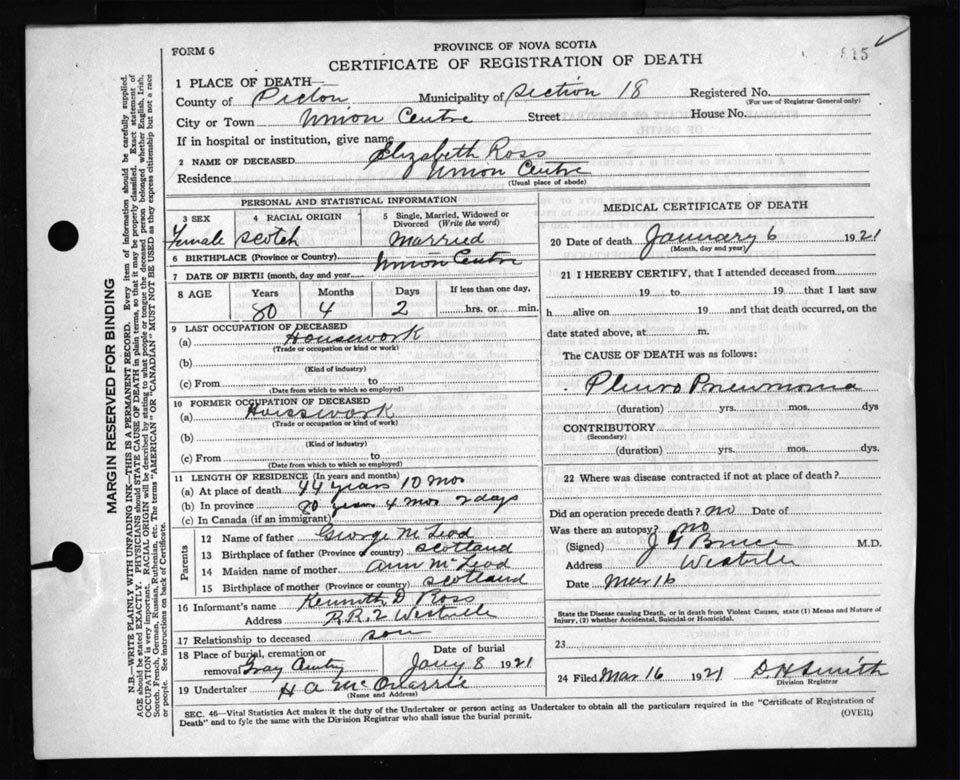 FORM 6
PROVINCE OF NOVA SCOTIA
CERTIFICATE OF REGISTRATION OF DEATH
815
1 PLACE OF DEATH—
County of Pictou Municipality of Section 18 Registered No.
(For use of Registrar General only)
City or Town Union Centre Street House No.
If in hospital or institution, give name
2 NAME OF DECEASED Elizabeth Ross
Residence Union Centre
(Usual place of abode)
PERSONAL AND STATISTICAL INFORMATION
3 SEX 4 RACIAL ORIGIN 5 Single, Married, Widowed or Divorced (Write the word)
Female Scotch Married
6 BIRTHPLACE (Province or Country) Union Centre
7 DATE OF BIRTH (month, day and year)
8 AGE Years Months Days If less than one day,
80 4 2 hrs. or min.
9 LAST OCCUPATION OF DECEASED
(a) Housework
(Trade or occupation or kind or work)
(b)
(Kind of industry)
(c) From to
(Date from which to which so employed)
10 FORMER OCCUPATION OF DECEASED
(a) Housework
(Trade or occupation or kind or work)
(b)
(Kind of industry)
(c) From to
(Date from which to which so employed)
11 LENGTH OF RESIDENCE (In years and months)
(a) At place of death 44 years 10 mos
(b) In province 80 years 4 mos 2 days
(c) In Canada (if an immigrant)
Parents
12 Name of father George McLeod
13 Birthplace of father (Province or country) Scotland
14 Maiden name of mother Ann McLeod
15 Birthplace of mother (Province or country) Scotland
16 Informant's name Kenneth D Ross
Address R.R.2 Westville
17 Relationship to deceased son
18 Place of burial, cremation or removal Date of burial
Jany 8 1921
19 Undertaker H A
(Name and Address)
MEDICAL CERTIFICATE OF DEATH
20 Date of death January 6 1921
(Month, day and year)
21 I HEREBY CERTIFY, that I attended deceased from
19 to 19 that I last saw
h alive on 19 and that death occurred, on the
date stated above, at m.
The CAUSE OF DEATH was as follows:
Pleuro Pneumonia
(duration) yrs. mos. dys
CONTRIBUTORY
(Secondary)
(duration) yrs. mos. dys.
22 Where was disease contracted if not at place of death?
Did an operation precede death? no Date of
Was there an autopsy? no
(Signed) J G Bruce M.D.
Address Westville
Date Mar 16
State the Disease causing Death, or in death from Violent Causes, state (1) Means and Nature of
Injury, (2) whether Accidental, Suicidal or Homicidal.
23
24 Filed Mar 16 1921 D. H Smith
Division Registrar
SEC. 46—Vital Statistics Act makes it the duty of the Undertaker or person acting as Undertaker to obtain all the particulars required in the "Certificate of Registration of
Death" and to fyle the same with the Division Registrar who shall issue the burial permit.
(OVER)
MARGIN RESERVED FOR BINDING
N.B.—WRITE PLAINLY WITH UNFADING INK—THIS IS A PERMANENT RECORD. Every item of information should be carefully supplied.
AGE should be stated EXACTLY. PHYSICIANS should STATE CAUSE OF DEATH in plain terms, so that it may be properly classified. Exact statement of
OCCUPATION is very important. RACIAL ORIGIN will be described by stating to what people or tongue the deceased person belonged whether English, Irish,
Scotch, French, German, Russian, Ruthenian, etc. The terms "AMERICAN" or "CANADIAN" MUST NOT BE USED as they express citizenship but not a race
or people. See instructions on back of Certificate.